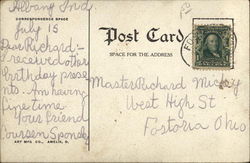 Albany Ind.
CORRESPONDENCE SPACE
July 15
Dear Richard:-
I received other
birthday prese
nts. Am having
fine time
Your friend
ART MFG. CO., AMELIA, O.
Post Card
SPACE FOR THE ADDRESS
Master Richard
West High St
Fostoria Ohio